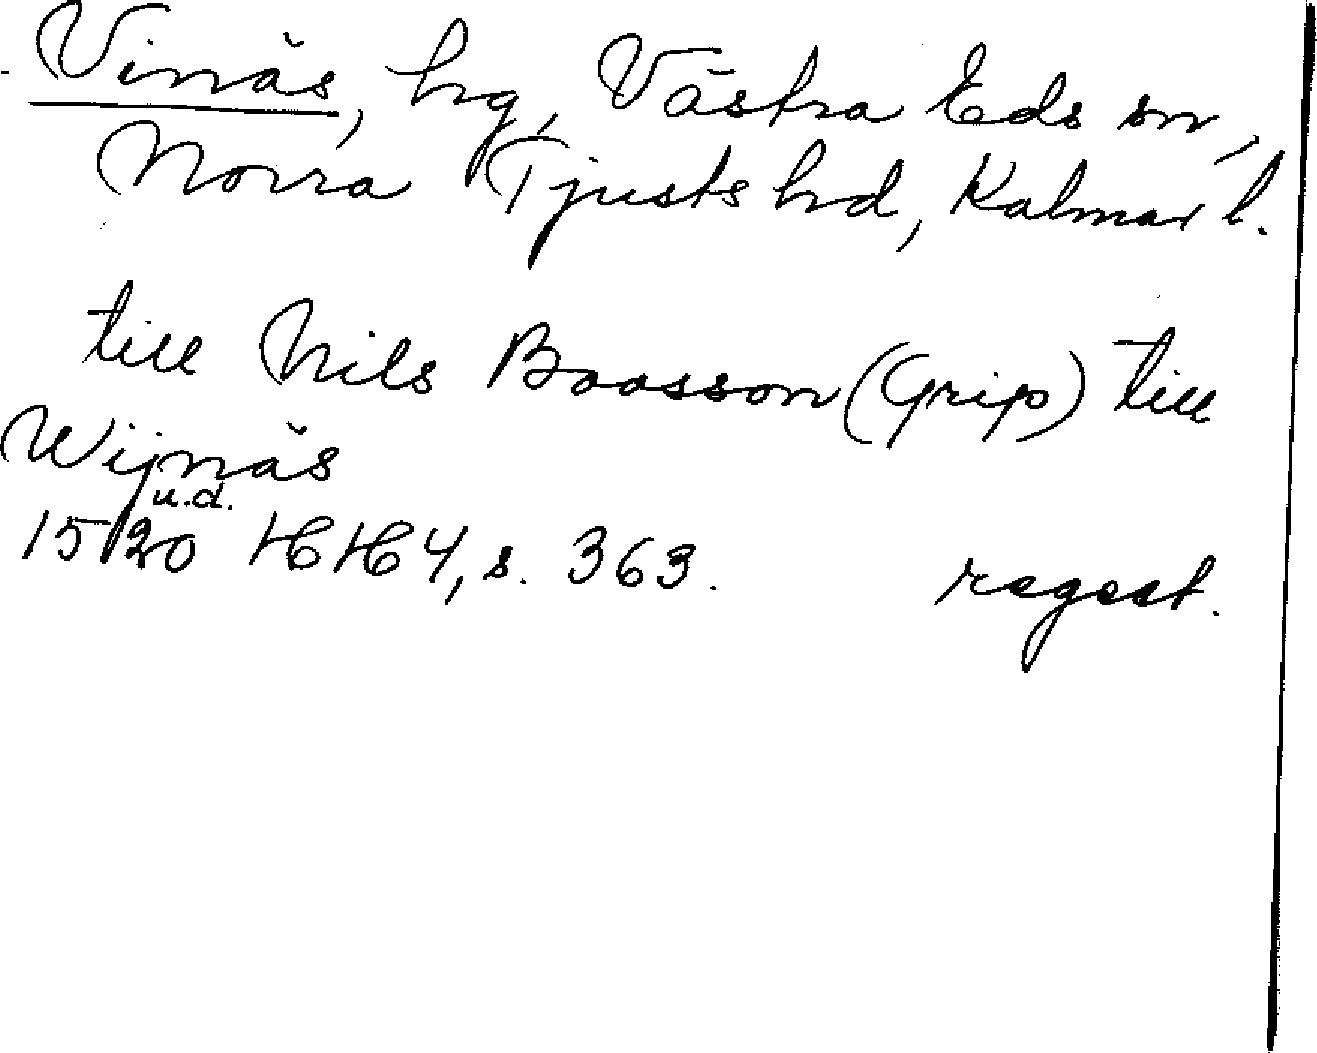 Vinäs, hg, Västra Eds sn,
Norra Tjusts hd, Kalmar l.
till Nils Boosson (Grip) till
Wijnäs
u.d.
1520 HH 4, s. 363. regest.